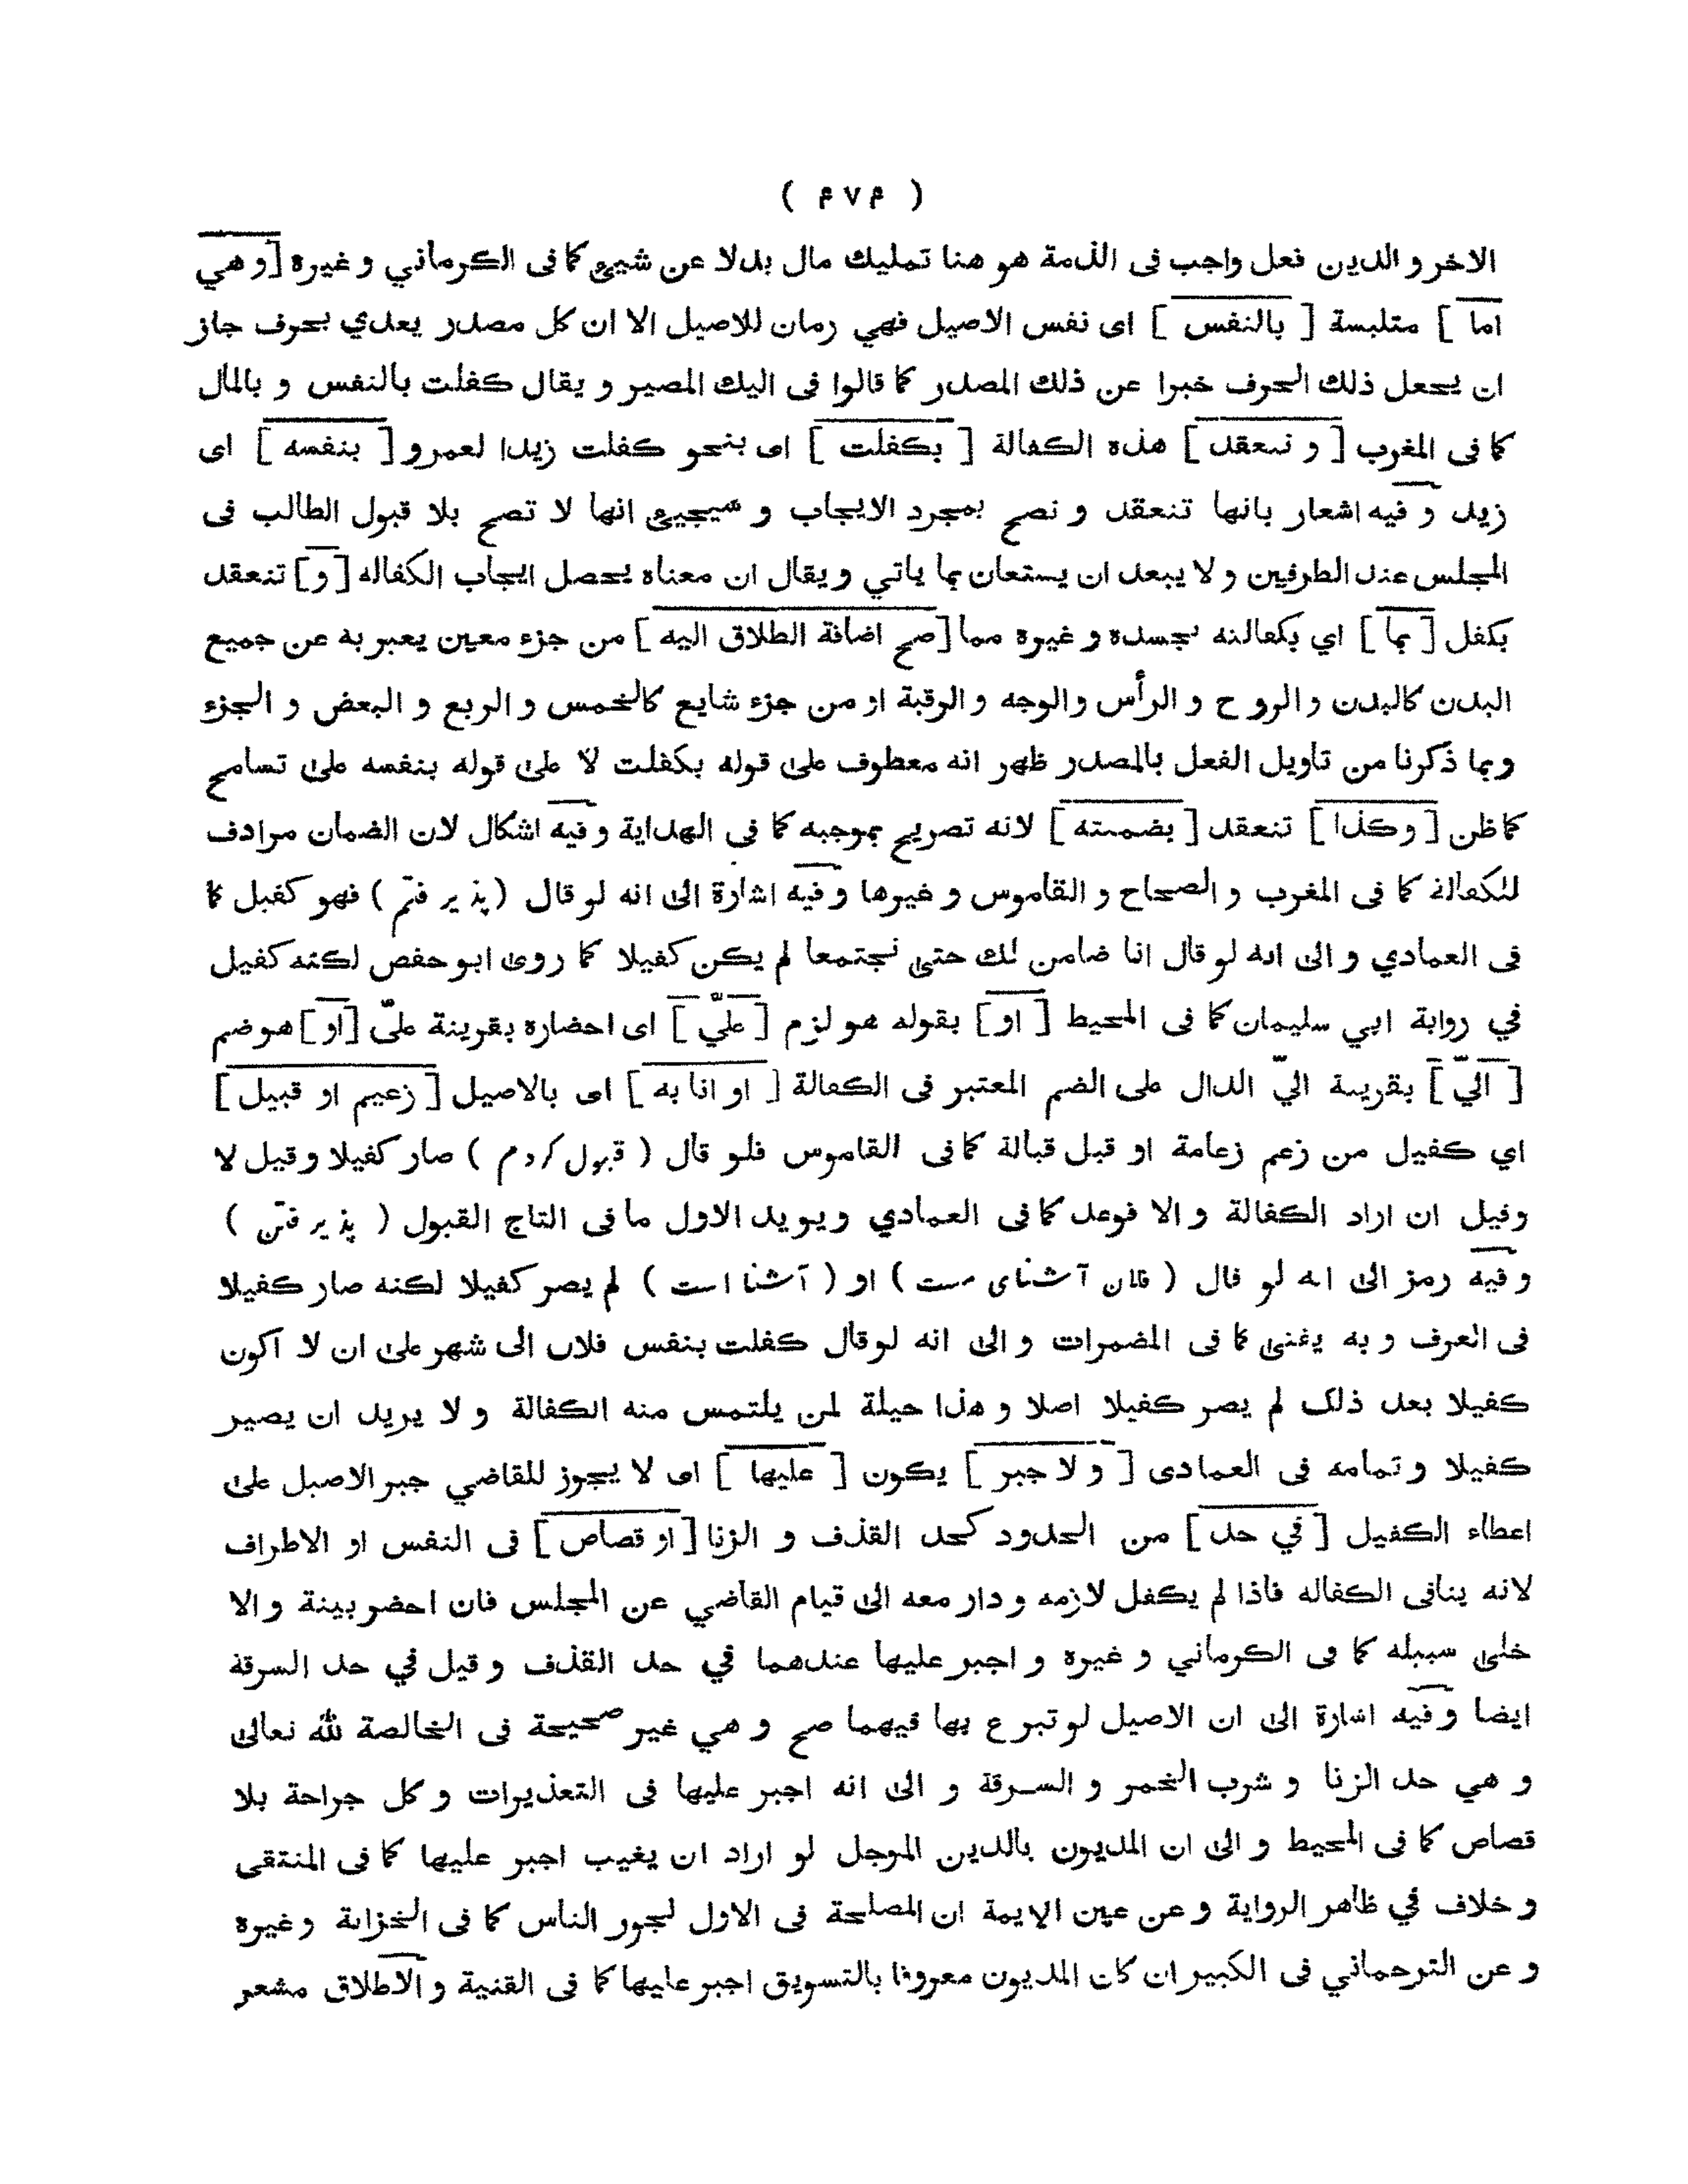 ( ۴۷۴ )
الاخر و الدين فعل واجب فى الذمة هو هنا تمليك مال بدلا عن شيئ كما فى الكرماني و غيره [ و هي
اما ] متلبسة [ بالنفس ] اى نفس الاصيل فهي رمان للاصيل الا ان كل مصدر يعدي بحرف جاز
ان يجعل ذلك الحرف خبرا عن ذلك المصدر كما قالوا فى اليك المصير و يقال كفلت بالنفس و بالمال
كما فى المغرب [ و تنعقد ] هذه الكفالة [ بكفلت ] اى بنحو كفلت زيدا لعمرو [ بنفسه ] اى
زيد و فيه اشعار بانها تنعقد و تصح بمجرد الايجاب و سيجيئ انها لا تصح بلا قبول الطالب فى
المجلس عند الطرفين و لا يبعد ان يستعان بما ياتي و يقال ان معناه يحصل ايجاب الكفاله [ و ] تنعقد
بكفل [ بما ] اي بكفالته بجسده و غيره مما [ صح اضافة الطلاق اليه ] من جزء معين يعبر به عن جميع
البدن كالبدن و الروح و الرأس و الوجه و الرقبة او من جزء شايع كالخمس و الربع و البعض و الجزء
وبما ذكرنا من تاويل الفعل بالمصدر ظهر انه معطوف على قوله بكفلت لا على قوله بنفسه على تسامح
كما ظن [ و كذا ] تنعقد [ بضمنته ] لانه تصريح بموجبه كما فى الهداية و فيه اشكال لان الضمان مرادف
للكفالة كما فى المغرب و الصحاح و القاموس و غيرها و فيه اشارة الى انه لو قال ( پذيرفتم ) فهو كفيل كما
فى العمادي و الى انه لو قال انا ضامن لك حتى نجتمعا لم يكن كفيلا كما روى ابو حفص لكنه كفيل
في رواية ابي سليمان كما فى المحيط [ او ] بقوله هو لزم [ عليّ ] اى احضاره بقرينة عليّ [ او ] هو ضم
[ اليّ ] بقرينة اليّ الدال على الضم المعتبر فى الكفالة [ او انا به ] اى بالاصيل [ زعيم او قبيل ]
اي كفيل من زعم زعامة او قبل قبالة كما فى القاموس فلو قال ( قبول كردم ) صار كفيلا و قيل لا
وقيل ان اراد الكفالة و الا فوعد كما فى العمادي و يويد الاول ما فى التاج القبول ( پذيرفتن )
و فيه رمز الى انه لو قال ( فلان آشناى منست ) او ( آشنا است ) لم يصر كفيلا لكنه صار كفيلا
فى العرف و به يفتى كما فى المضمرات و الى انه لو قال كفلت بنفس فلان الى شهر على ان لا اكون
كفيلا بعد ذلك لم يصر كفيلا اصلا و هذا حيلة لمن يلتمس منه الكفالة و لا يريد ان يصير
كفيلا و تمامه فى العمادى [ و لا جبر ] يكون [ عليها ] اى لا يجوز للقاضي جبر الاصيل على
اعطاء الكفيل [ في حد ] من الحدود كحد القذف و الزنا [ او قصاص ] فى النفس او الاطراف
لانه ينافى الكفاله فاذا لم يكفل لازمه و دار معه الى قيام القاضي عن المجلس فان احضر بينة و الا
خلى سبيله كما فى الكرماني و غيره و اجبر عليها عندهما في حد القذف و قيل في حد السرقة
ايضا و فيه اشارة الى ان الاصيل لو تبرع بها فيهما صح و هي غير صحيحة فى الخالصة لله تعالى
و هي حد الزنا و شرب الخمر و السرقة و الى انه اجبر عليها فى التعذيرات و كل جراحة بلا
قصاص كما فى المحيط و الى ان المديون بالدين الموجل لو اراد ان يغيب اجبر عليها كما فى المنتقى
و خلاف في ظاهر الرواية و عن عين الايمة ان المصلحة فى الاول لجور الناس كما فى الخزانة و غيره
و عن الترحماني فى الكبير ان كان المديون معروفا بالتسويق اجبر عليها كما فى القنية و الاطلاق مشعر